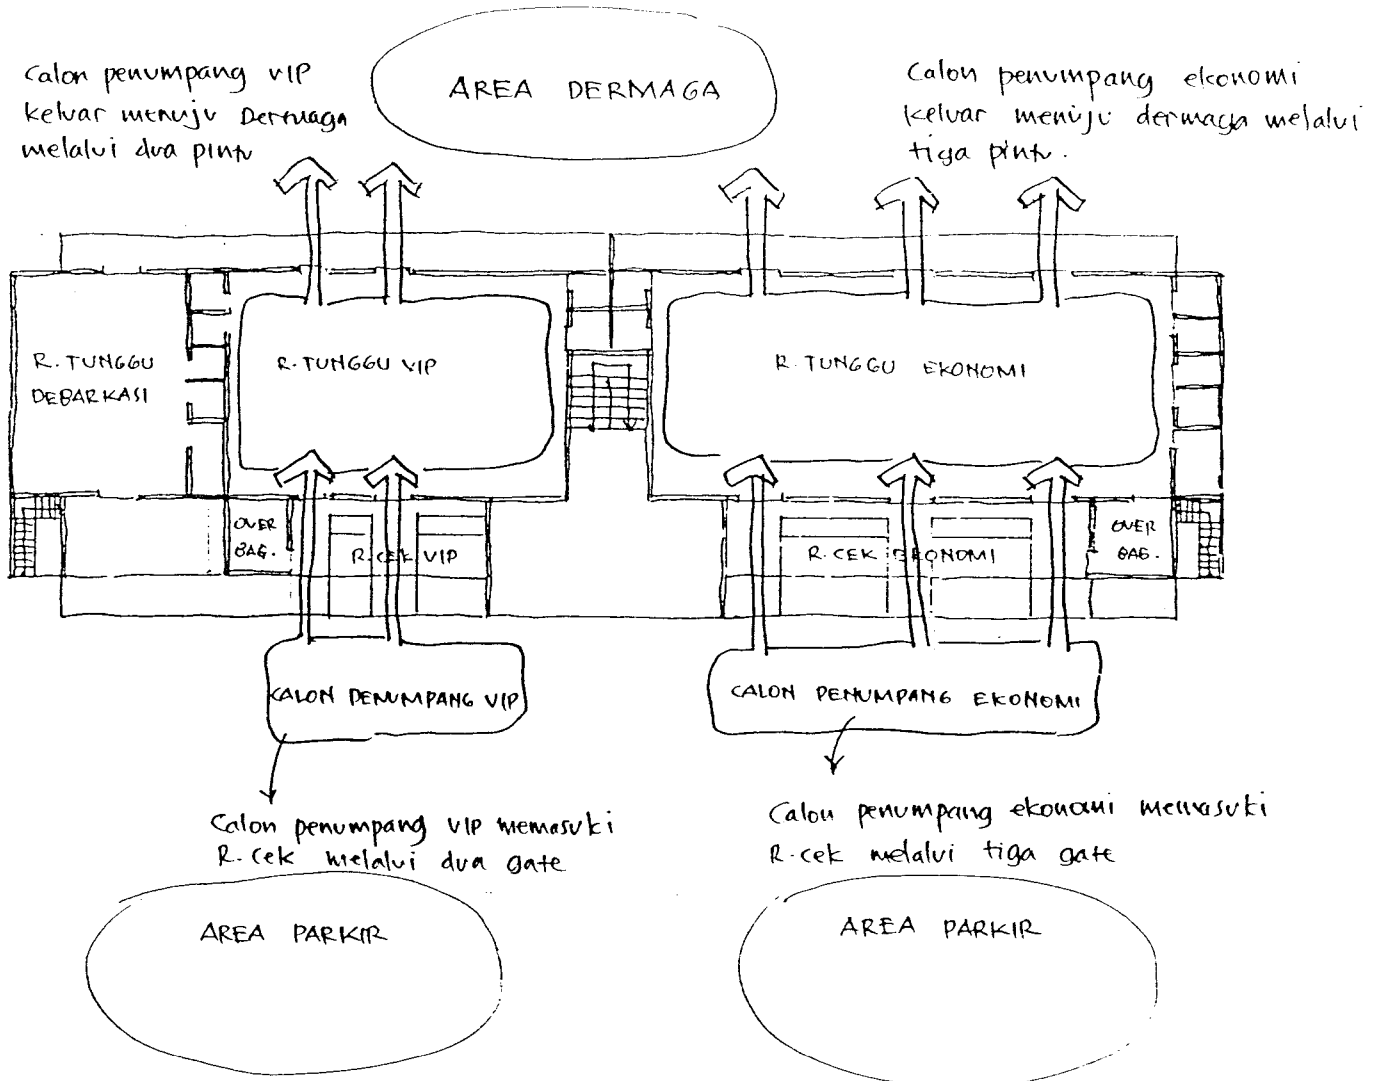 AREA DERMAGA
Calon penumpang VIP
keluar menuju Dermaga
melalui dua pintu
Calon penumpang ekonomi
keluar menuju dermaga melalui
tiga pintu.
R. TUNGGU
DEBARKASI
R. TUNGGU VIP
R. TUNGGU EKONOMI
OVER
BAG.
R. CEK VIP
R. CEK EKONOMI
OVER
BAG.
CALON PENUMPANG VIP
CALON PENUMPANG EKONOMI
Calon penumpang VIP memasuki
R. cek melalui dua gate
Calon penumpang ekonomi memasuki
R. cek melalui tiga gate
AREA PARKIR
AREA PARKIR